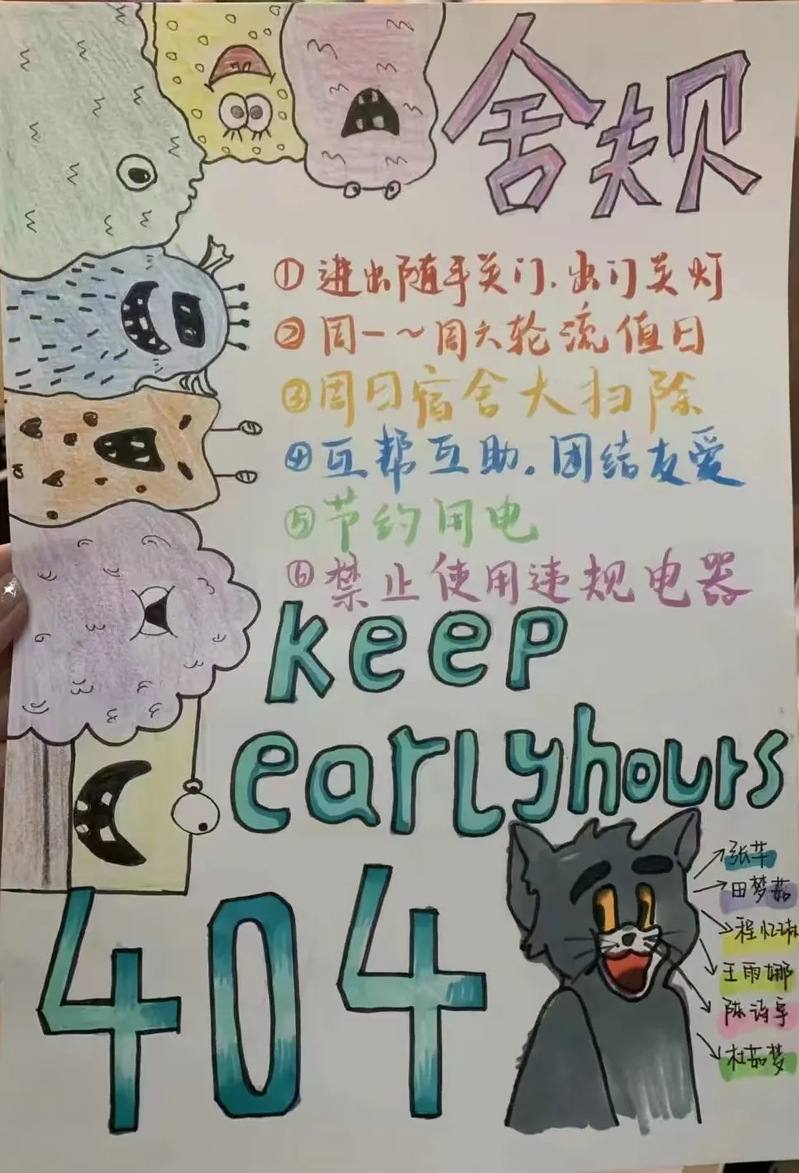 舍规
①进出随手关门.出门关灯
②周一～周六轮流值日
③周日宿舍大扫除
④互帮互助。团结友爱
⑤节约用电
⑥禁止使用违规电器
keep
earlyhours
404
田梦茹
王雨娜
陈诗宇
杜茹梦